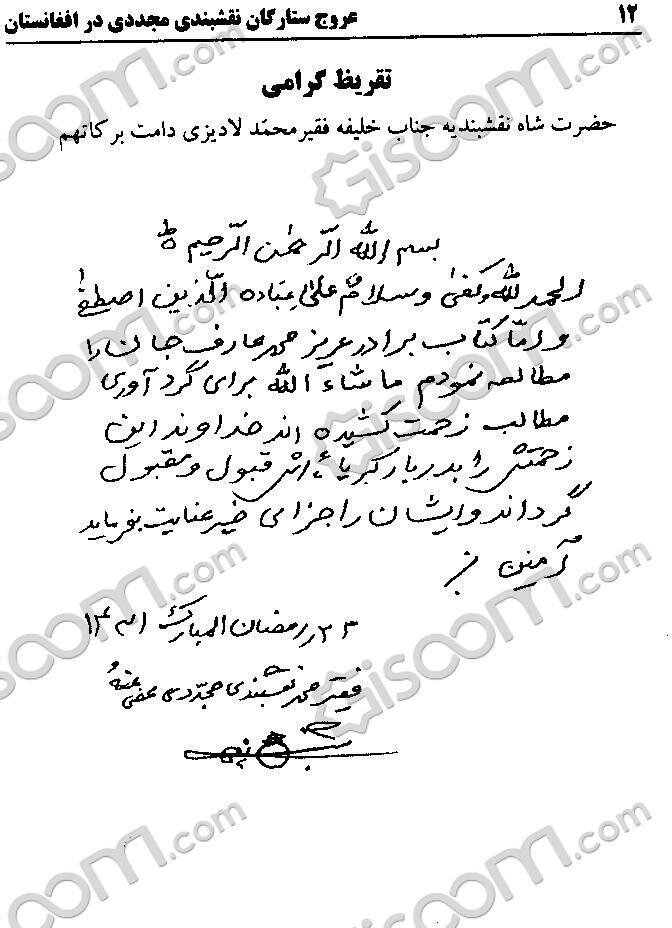 ۱۲ عروج ستارگان نقشبندی مجددی در افغانستان
تقریظ گرامی
حضرت شاه نقشبندیه جناب خلیفه فقیر محمّد لادیزی دامت برکاتهم
بسم الله الرّحمٰن الرّحیم ط
الحمد للّٰه و کفیٰ و سلامٌ علیٰ عباده الّذین اصطفیٰ
و امّا کتاب برادر عزیز محمد عارف جان را
مطالعه نمودم ما شاء الله برای گرد آوری
مطالب زحمت کشیده اند خداوند این
زحمتش را بدربار کبریائ اش قبول و مقبول
گرداند و ایشان را جزای خیر عنایت بفرماید
آمین
رمضان المبارک
فقیر محمد نقشبندی مجدّدی عفی عنهُ
Gisoom.com